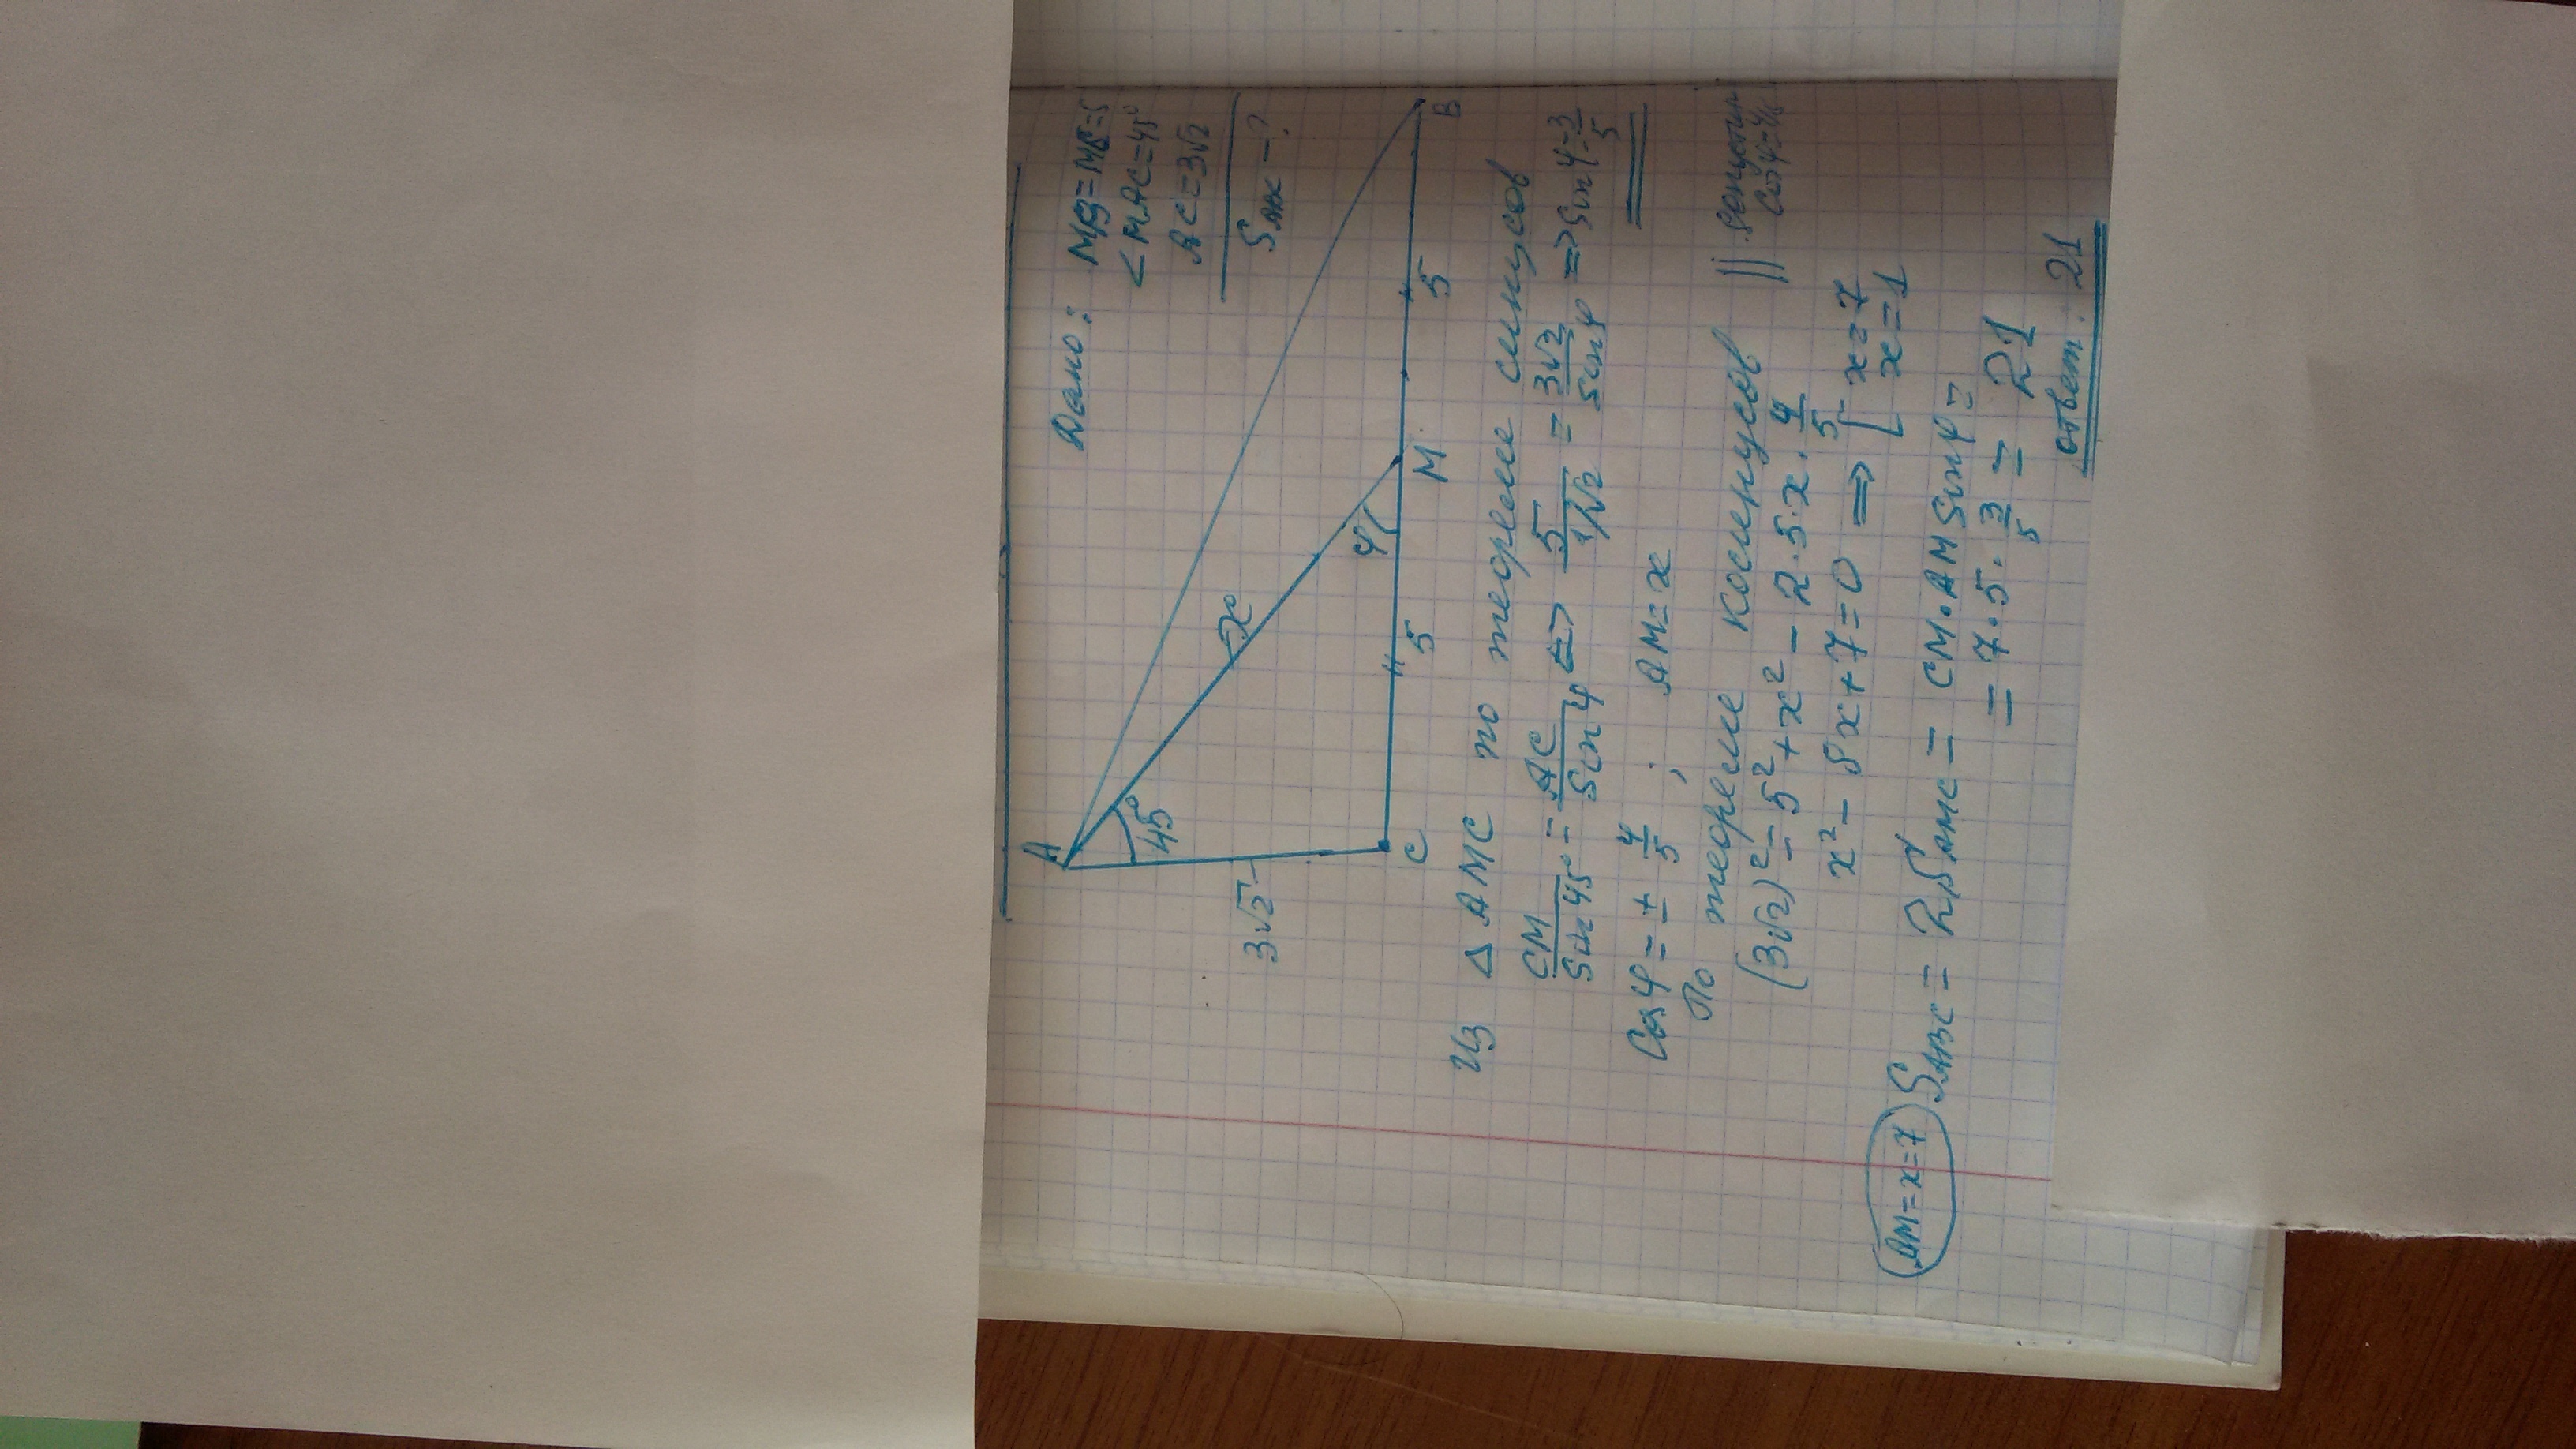 Дано: MB=MC=5
<MAC=45°
AC=3√2
S_ABC-?
A
45°
x
3√2
φ
C
5
M
5
B
Из Δ AMC по теореме синусов
CM/Sin45° = AC/Sinφ <=> 5/(1/√2) = 3√2/Sinφ => Sinφ=3/5
Cosφ=±4/5 ; AM=x
По теореме косинусов || допустим Cosφ=4/5
(3√2)²=5²+x²-2·5·x·4/5
x²-8x+7=0 => [x=7 x=1
AM=x=7
S_ABC=2S_AMC=CM·AM Sinφ=
=7·5·3/5=21
ответ: 21